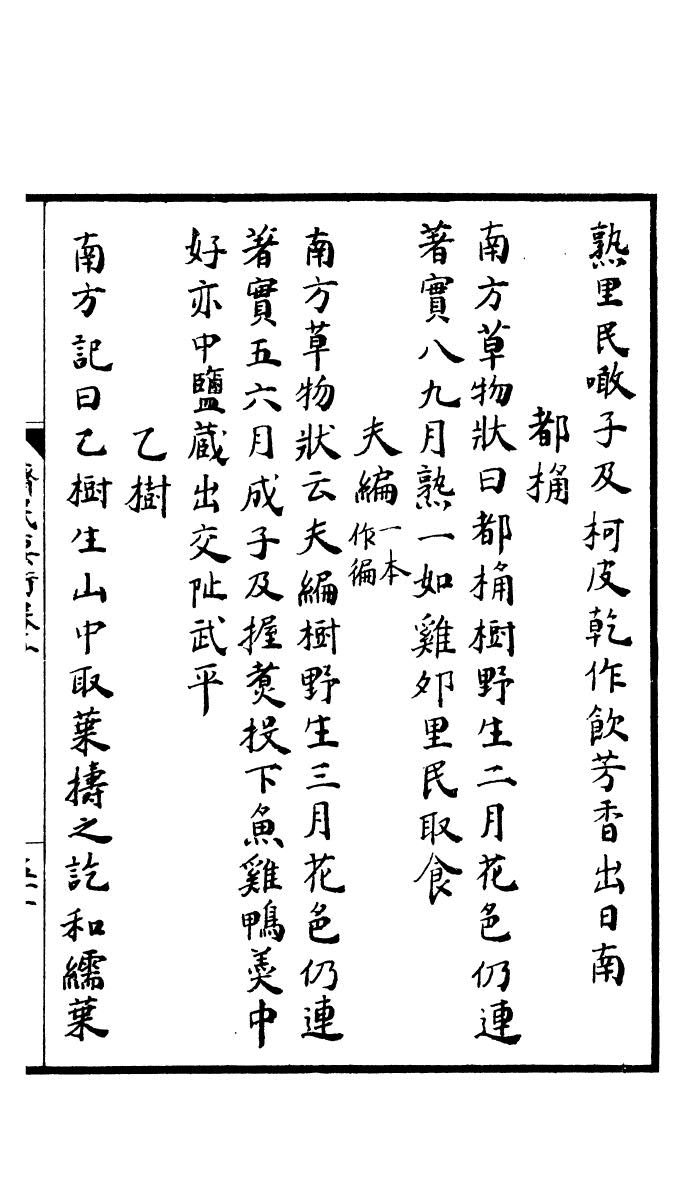 熟里民噉子及柯皮乾作飲芳香出日南
都桷
南方草物狀曰都桷樹野生二月花色仍連
著實八九月熟一如雞夘里民取食
夫編一本作徧
南方草物狀云夫編樹野生三月花色仍連
著實五六月成子及握煑投下魚雞鴨羮中
好亦中鹽蔵出交阯武平
乙樹
南方記曰乙樹生山中取葉擣之訖和繻葉